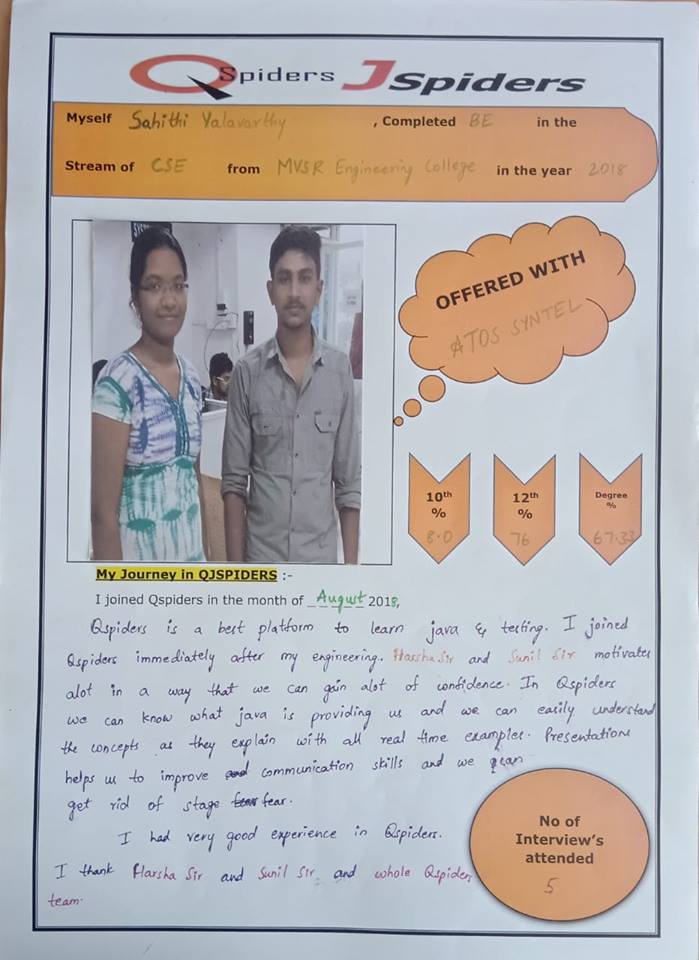 QSpiders JSpiders
Myself Sahithi Yalavarthy , Completed BE in the
Stream of CSE from MVSR Engineering College in the year 2018
OFFERED WITH
ATOS SYNTEL
10th
%
8.0
12th
%
76
Degree
%
67.33
My Journey in QJSPIDERS :-
I joined Qspiders in the month of August 2018,
Qspiders is a best platform to learn java & testing. I joined
Qspiders immediately after my engineering. Harsha Sir and Sunil Sir motivates
alot in a way that we can gain alot of confidence. In Qspiders
we can know what java is providing us and we can easily understand
the concepts as they explain with all real time examples. Presentations
helps us to improve and communication skills and we can
get rid of stage fear fear.
I had very good experience in Qspiders.
I thank Harsha Sir and Sunil Sir and whole Qspiders
team.
No of
Interview's
attended
5